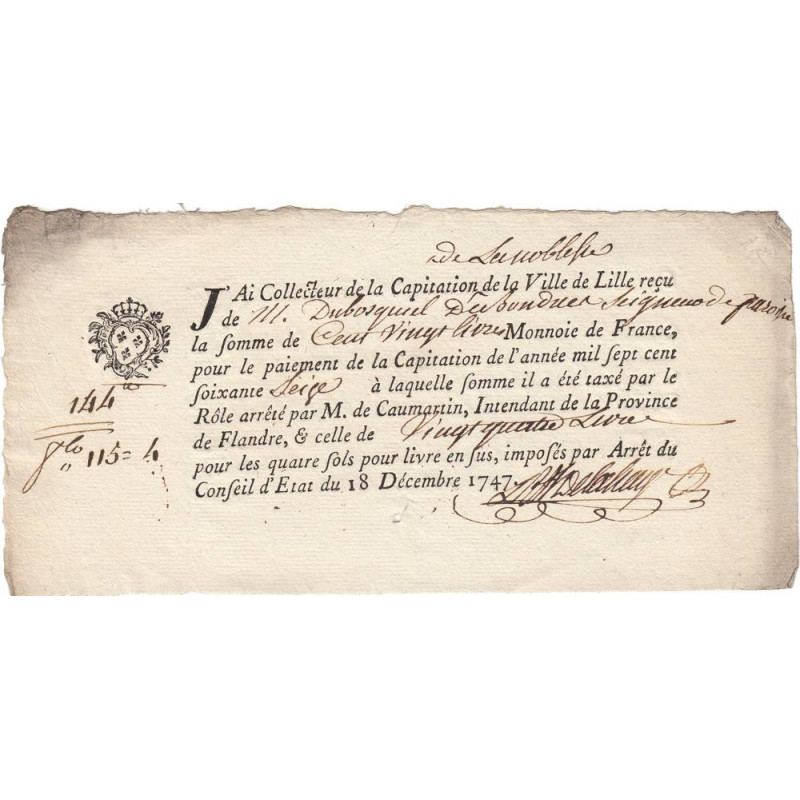 de La noblesse
J'Ai Collecteur de la Capitation de la Ville de Lille reçu
de M. Dubosquiel Desbondues Seigneur de
la somme de Cent Vingt livres Monnoie de France,
pour le paiement de la Capitation de l'année mil sept cent
soixante Seize à laquelle somme il a été taxé par le
Rôle arrêté par M. de Caumartin, Intendant de la Province
de Flandre, & celle de Vingt quatre Livres
pour les quatre sols pour livre en sus, imposés par Arrêt du
Conseil d'Etat du 18 Décembre 1747.
144
115 = 4